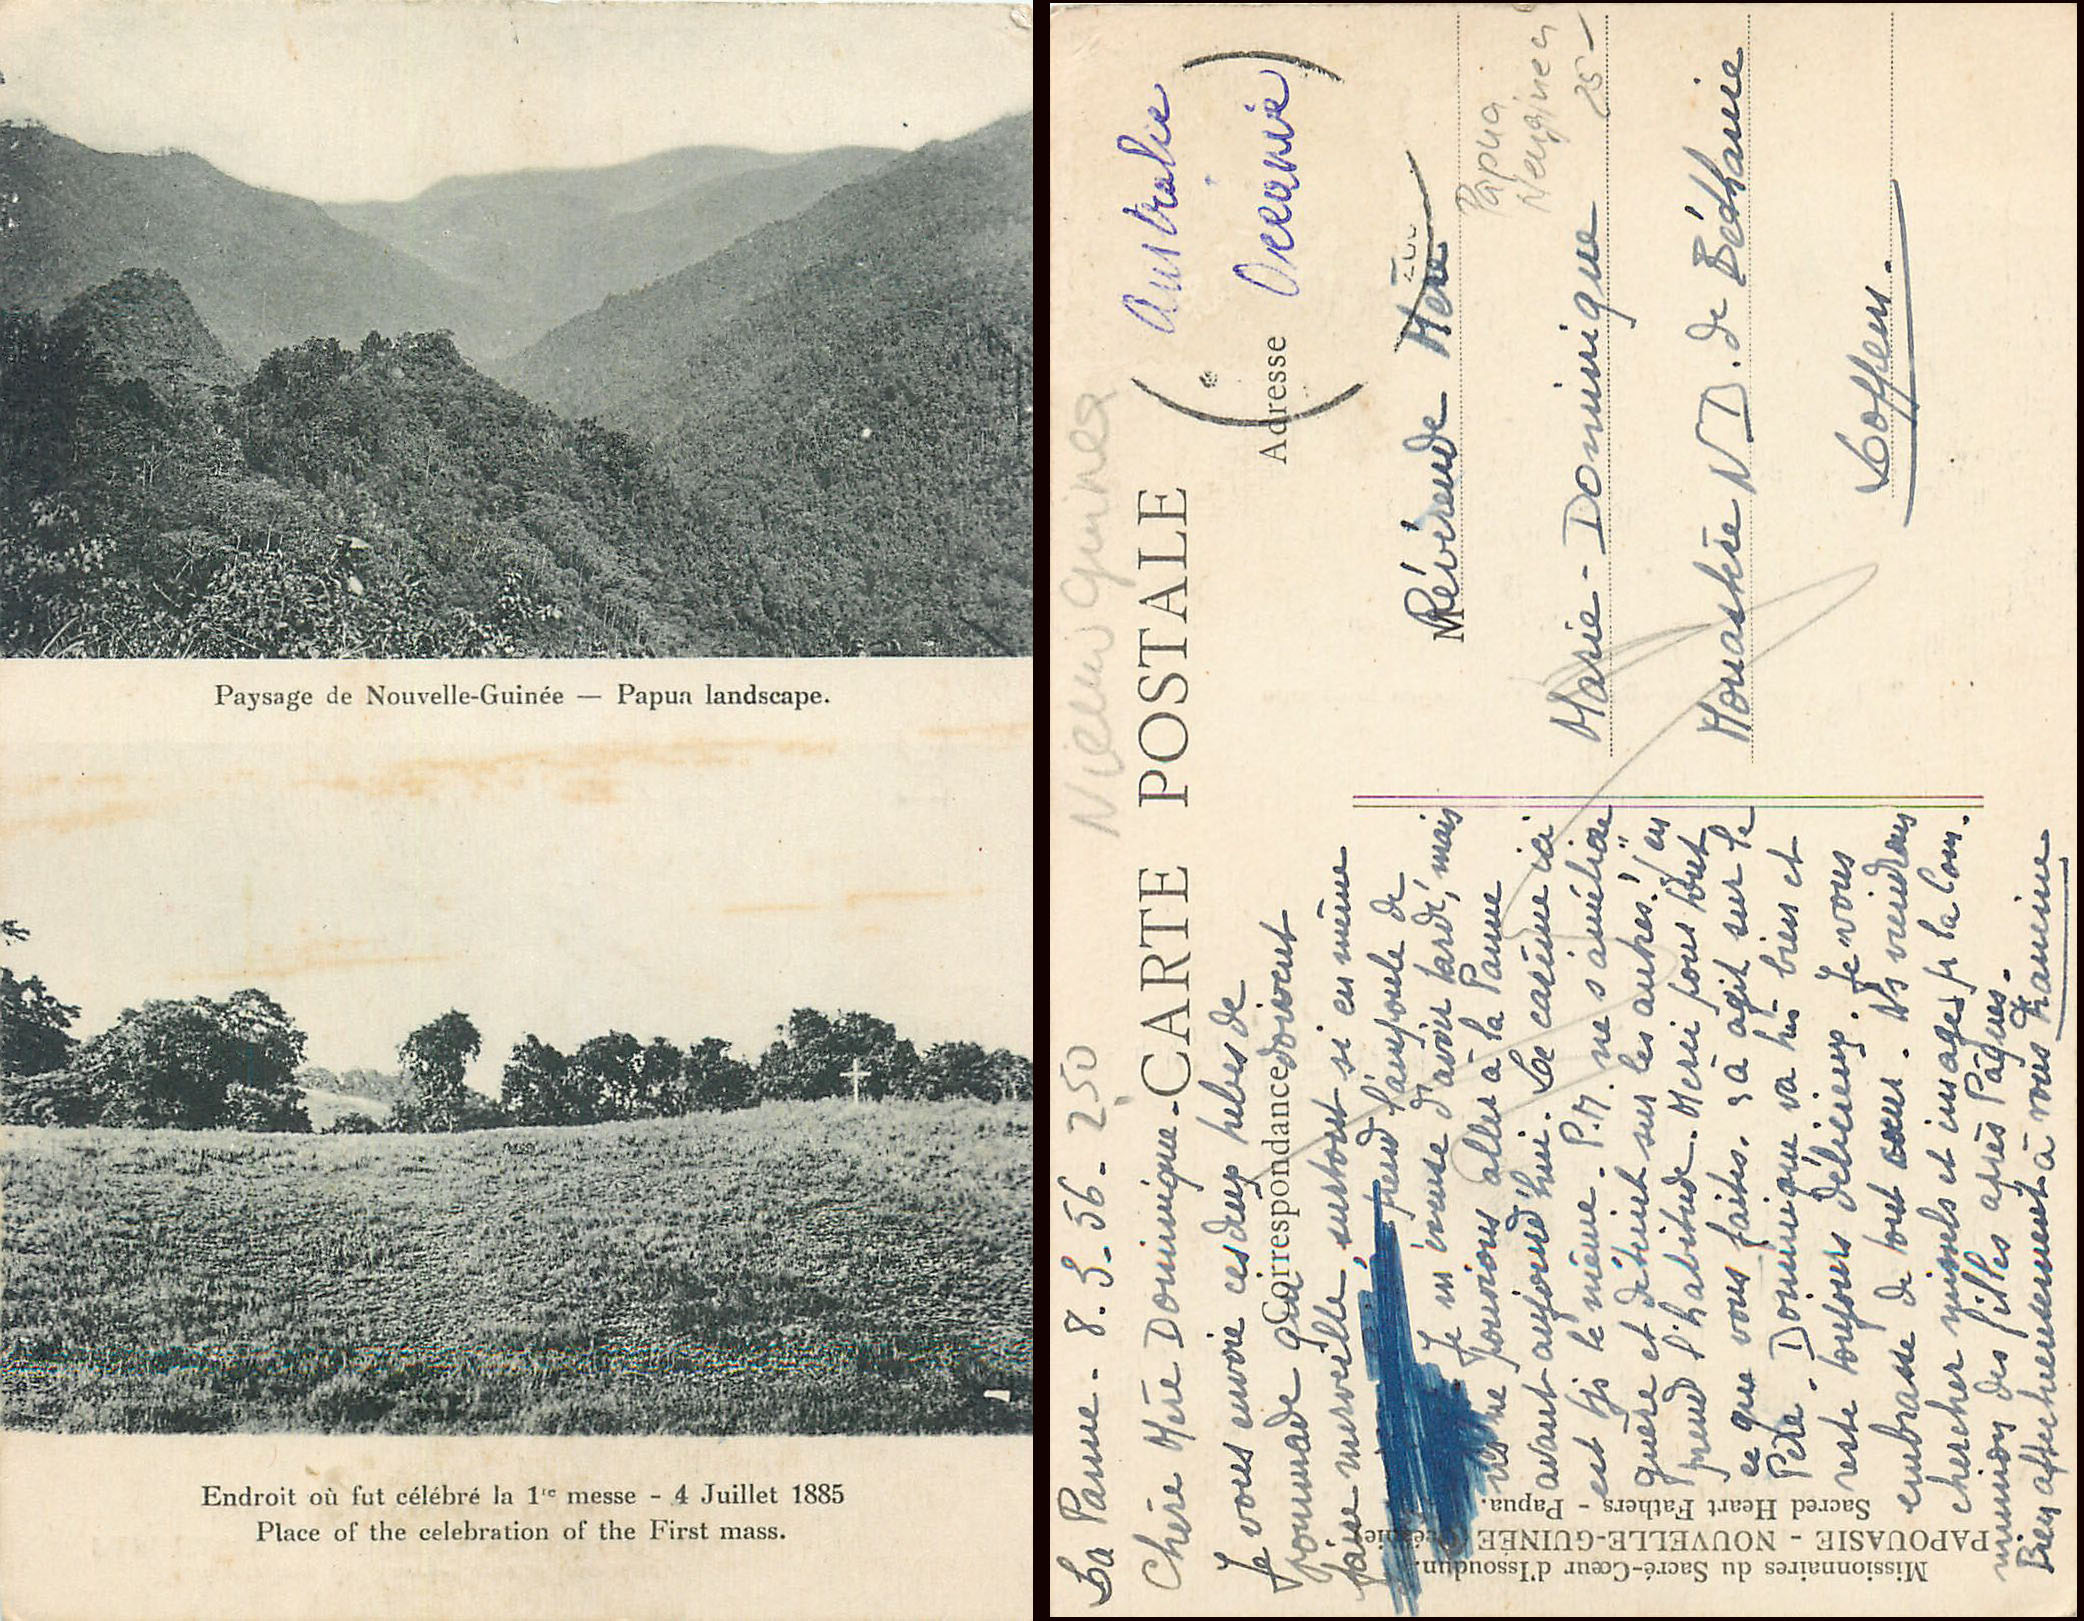 Paysage de Nouvelle-Guinée — Papua landscape.
Endroit où fut célébré la 1re messe - 4 Juillet 1885
Place of the celebration of the First mass.
Nieuw Guinea
CARTE POSTALE
Correspondance
Adresse
(Australie
Océanie)
La Panne - 8.3.56 - 250
Chère Mère Dominique -
Je vous envoie ces deux tubes de
pommade qui doivent
faire merveille, surtout si en même
prend l'ampoule de
Je m'excuse d'avoir tardé, mais
ne pouvions aller à la Panne
avant aujourd'hui. Le carême ici
est tjs le même. P.M. ne s'améliore
guère et déteint sur les autres! "en
prend l'habitude. Merci pour tout
ce que vous faites, çà agit sur le
Père. Dominique va très bien et
reste toujours délicieux. Je vous
embrasse de tout cœur. Ns viendrons
chercher missels et images pr la Com.
des filles après Pâques.
Bien affectueusement à vous
Révérende Mère
Marie-Dominique
Monastère N.D. de Béthanie
Loppem.
Papua
25-
Missionnaires du Sacré-Cœur d'Issoudun.
PAPOUASIE - NOUVELLE-GUINÉE
Sacred Heart Fathers - Papua.